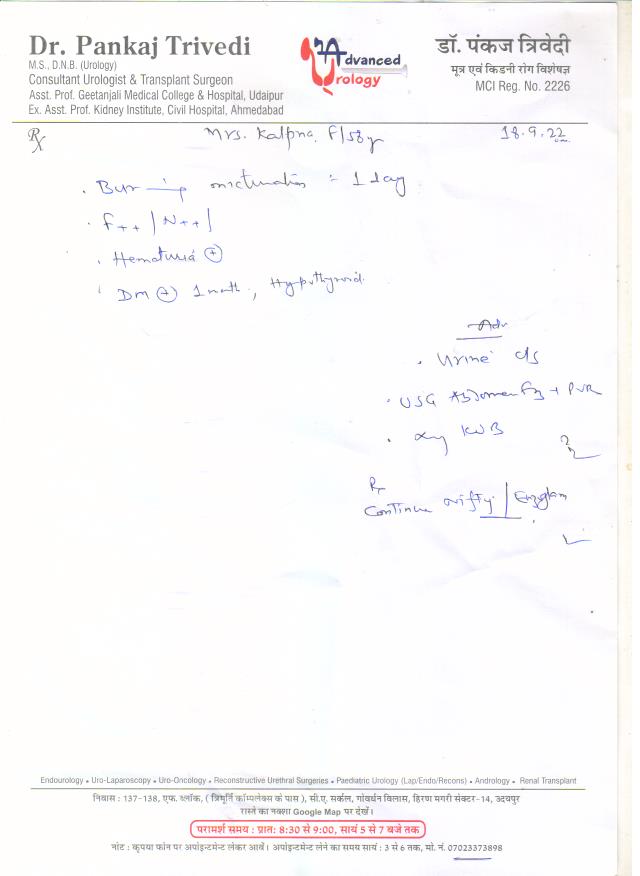 Dr. Pankaj Trivedi
M.S., D.N.B. (Urology)
Consultant Urologist & Transplant Surgeon
Asst. Prof. Geetanjali Medical College & Hospital, Udaipur
Ex. Asst. Prof. Kidney Institute, Civil Hospital, Ahmedabad
Advanced
Urology
डॉ. पंकज त्रिवेदी
मूत्र एवं किडनी रोग विशेषज्ञ
MCI Reg. No. 2226
Rx
Mrs. Kalpna F/58y 18.9.22
. Burning micturation - 1 day
. F++ | N++ |
. Hematuria (+)
. DM (+) 1 month, Hypothyroid
Adv
. Urine c/s
. USG Abdomen + PVR
. Xray KUB
Rx
Continue Nifty |
Endourology • Uro-Laparoscopy • Uro-Oncology • Reconstructive Urethral Surgeries • Paediatric Urology (Lap/Endo/Recons) • Andrology • Renal Transplant
निवास : 137-138, एफ. ब्लॉक, ( त्रिमूर्ति कॉम्पलेक्स के पास ), सी.ए. सर्कल, गोवर्धन विलास, हिरण मगरी सेक्टर-14, उदयपुर
रास्ते का नक्शा Google Map पर देखें।
परामर्श समय : प्रात: 8:30 से 9:00, सायं 5 से 7 बजे तक
नोट : कृपया फोन पर अपॉइन्टमेंट लेकर आवें। अपॉइन्टमेंट लेने का समय सायं : 3 से 6 तक, मो. नं. 07023373898